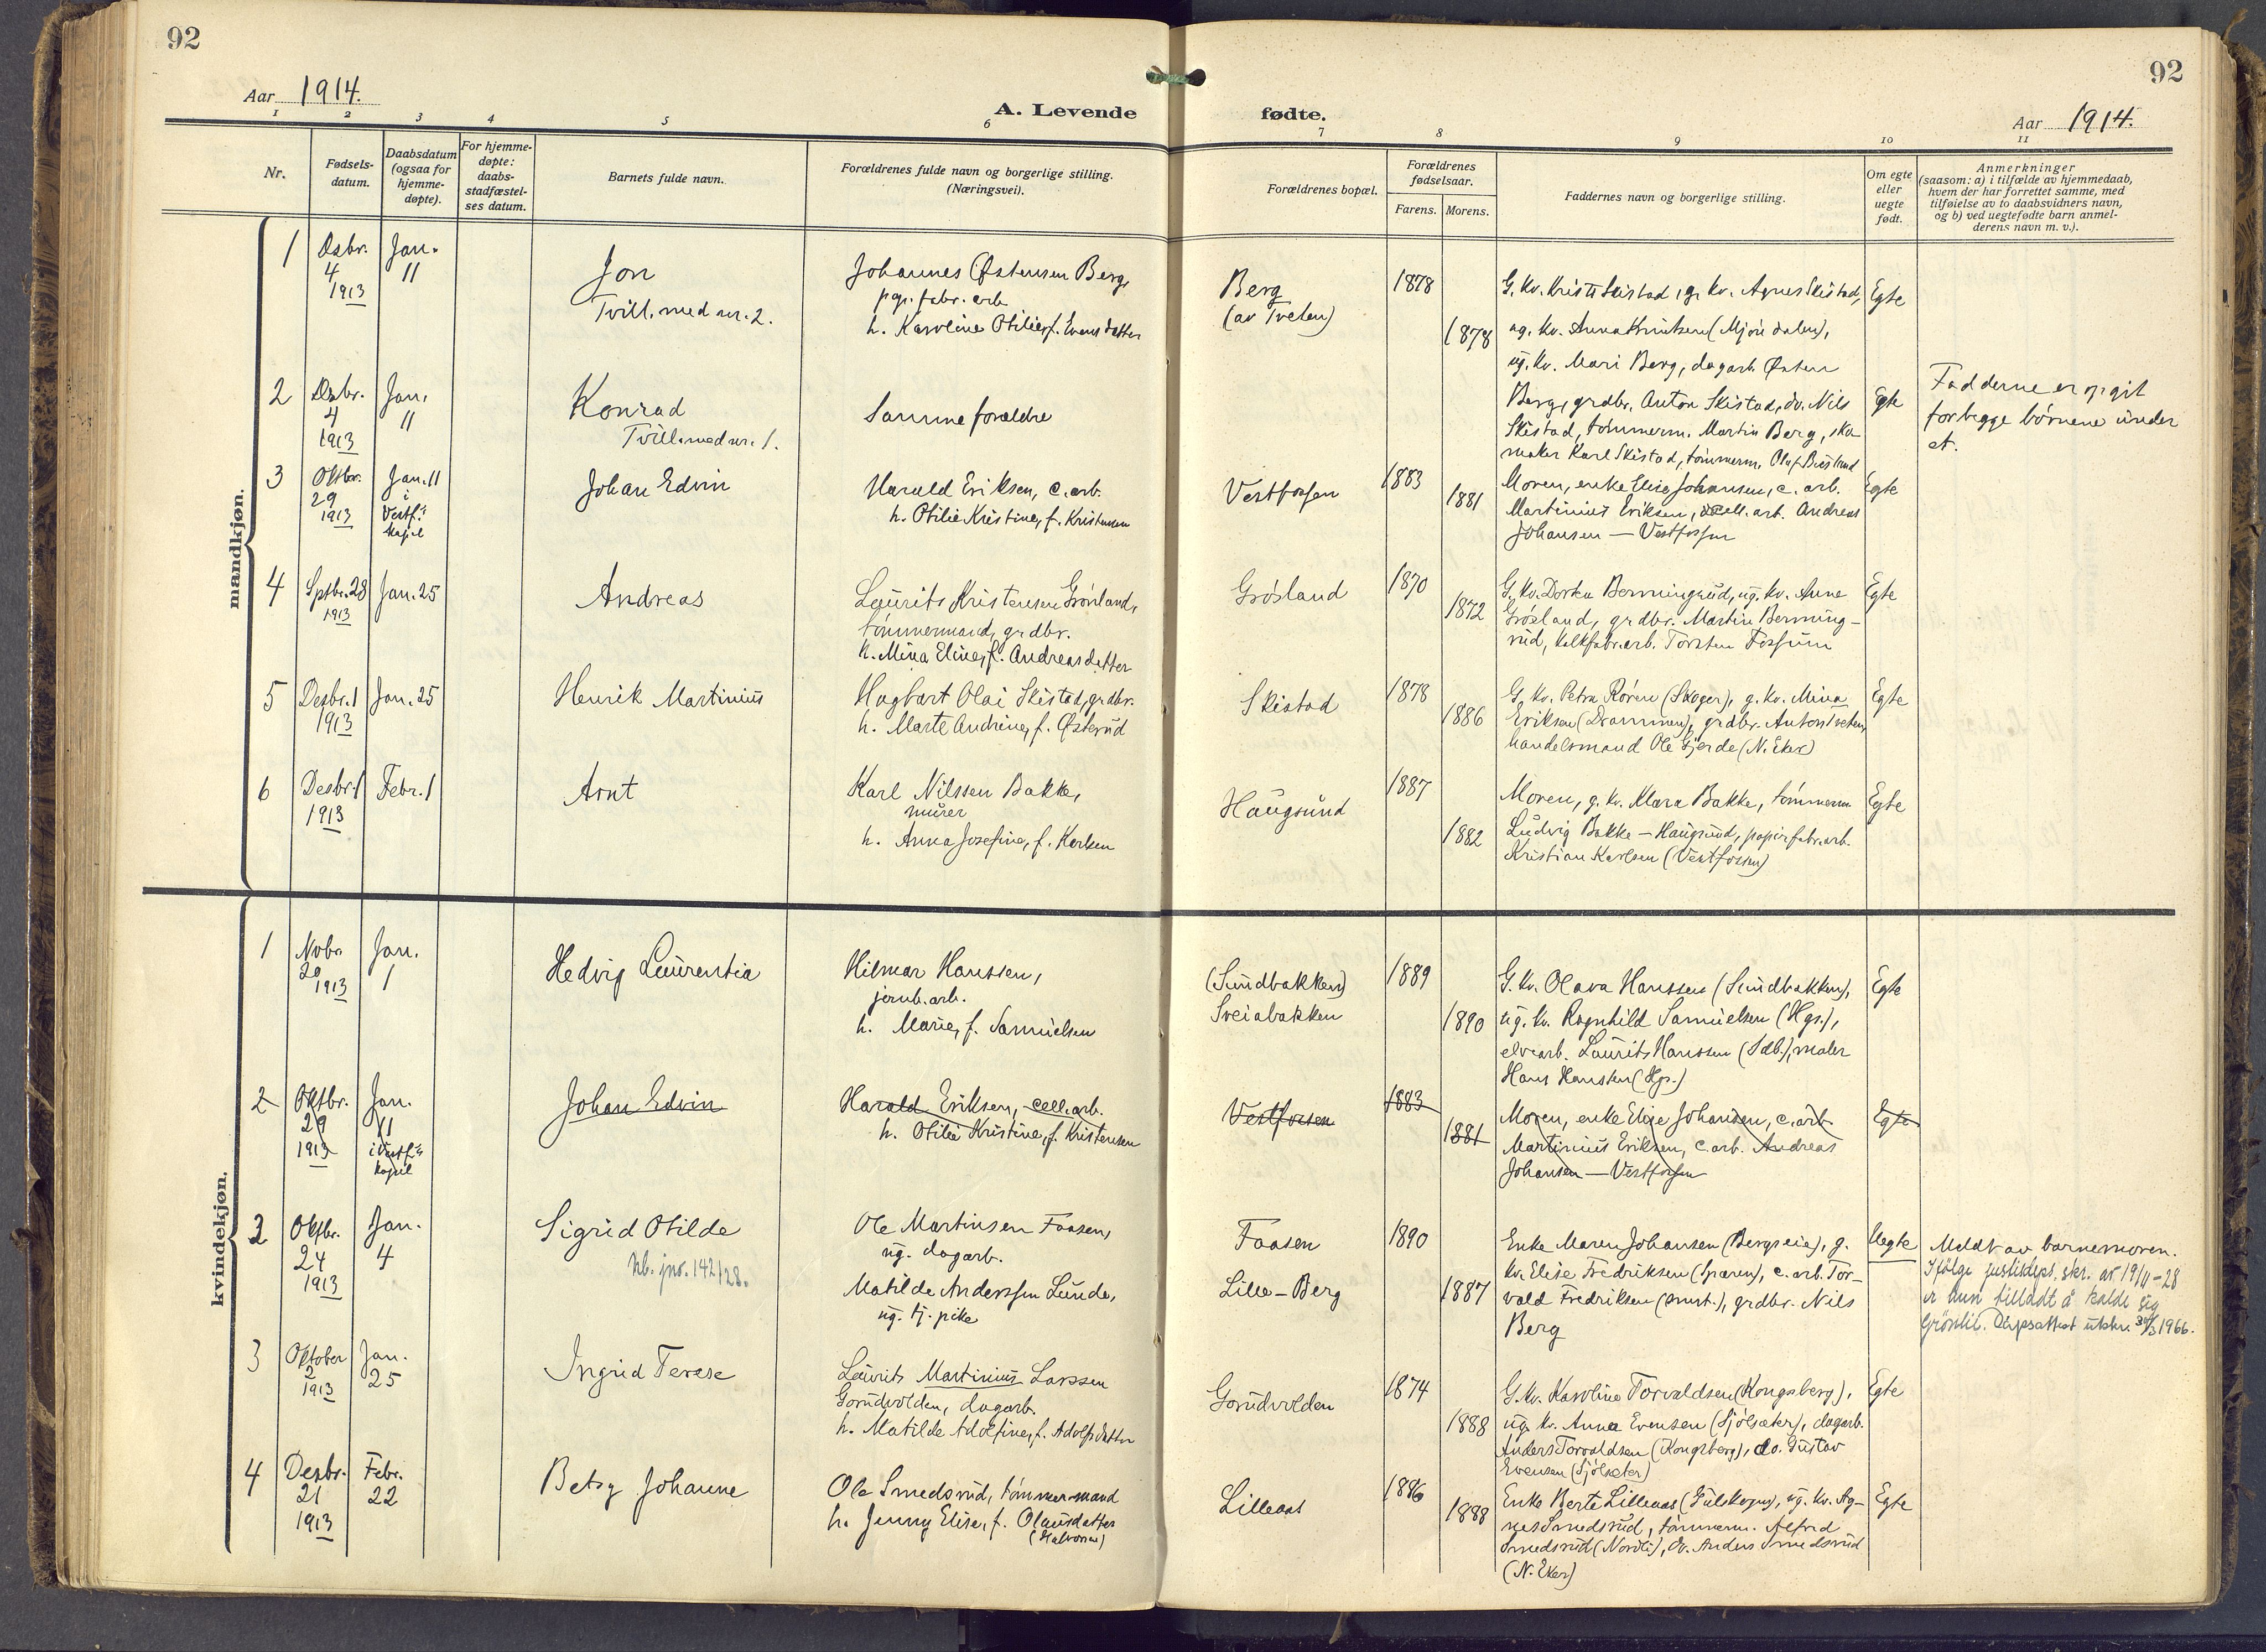 92
92
Aar 1914.
A. Levende fødte.
Aar 1914.
1 2 3 4 5 6 7 8 9 10 11
Nr.
Fødsels-
datum.
Daabsdatum
(ogsaa for
hjemme-
døpte).
For hjemme-
døpte:
daabs-
stadfæstel-
ses datum.
Barnets fulde navn.
Forældrenes fulde navn og borgerlige stilling.
(Næringsvei).
Forældrenes bopæl.
Forældrenes
fødselsaar.
Farens. Morens.
Faddernes navn og borgerlige stilling.
Om egte
eller
uegte
født.
Anmerkninger
(saasom: a) i tilfælde av hjemmedaab,
hvem der har forrettet samme, med
tilføielse av to daabsvidners navn,
og b) ved uegtefødte barn anmel-
derens navn m. v.).
mandkjøn.
1
Dsbr.
4
1913
Jan.
11
Jon
Tvill. med nr. 2.
Johannes Østensen Berg,
pap. fabr. arb.
h. Karoline Otilie, f. Evensdatter
Berg
(av Tveten)
1878
1878
G. kv. Kristi Skistad, g. kv. Agnes Skistad,
ug. kv. Anna Knutsen (Mjøndalen),
ug. kv. Mari Berg, dagarb. Østen
Berg, grdbr. Anton Skistad, do. Nils
Skistad, tømmerm. Martin Berg, sko-
maker Karl Skistad, tømmerm. Olaf
Egte
2
Dsbr.
4
1913
Jan.
11
Konrad
Tvill. med nr. 1.
Samme forældre
Egte
Fadderne er opgit
for begge børnene under
et.
3
Oktbr.
29
1913
Jan. 11
i
Vestf.
kapel
Johan Edvin
Harald Eriksen, c. arb.
h. Otilie Kristine, f. Kristensen
Vestfossen
1883
1881
Moren, enke Elise Johansen, c. arb.
Martinius Eriksen, cell. arb. Andreas
Johansen — Vestfossen
Egte
4
Sptbr. 28
1913
Jan. 25
Andreas
Laurits Kristensen Grøsland,
tømmermand, grdbr.
h. Mina Eline, f. Andreasdatter
Grøsland
1870
1872
G. kv. Dorthea Bermingrud, ug. kv. Anne
Grøsland, grdbr. Martin Berming-
rud, kalkfabr. arb. Torsten Fossum
Egte
5
Desbr. 1
1913
Jan. 25
Henrik Martinius
Hagbart Olai Skistad, grdbr.
h. Marte Andrine, f. Østerud
Skistad
1878
1886
G. kv. Petra Røren (Skoger), g. kv. Mina
Eriksen (Drammen), grdbr. Anton Tveten,
handelsmand Ole Gjerde (N. Eker)
Egte
6
Desbr. 1
1913
Febr. 1
Arnt
Karl Nilssen Bakke,
murer
h. Anna Josefine, f. Karlsen
Haugsund
1887
1882
Moren, g. kv. Klara Bakke, tømmerm.
Ludvig Bakke — Haugsund, papirfabr. arb.
Kristian Karlsen (Vestfossen)
Egte
kvindekjøn.
1
Nvbr.
20
1913
Jan.
1
Hedvig Laurentia
Hilmar Hanssen,
jernb. arb.
h. Marie, f. Samuelsen
(Sundbakken)
Sveiabakken
1889
1890
G. kv. Olava Hanssen (Sundbakken),
ug. kv. Ragnhild Samuelsen (Hgs.),
elvearb. Laurits Hanssen (Sdb.), maler
Hans Hanssen (Hgs.)
Egte
2
Oktbr.
29
1913
Jan.
11
i Vestf.
kapel
Johan Edvin
Harald Eriksen, cell. arb.
h. Otilie Kristine, f. Kristensen
Vestfossen
1883
1881
Moren, enke Elise Johansen, c. arb.
Martinius Eriksen, c. arb. Andreas
Johansen — Vestfossen
Egte
2
Oktbr.
24
1913
Jan.
4
Sigrid Otilde
nb. jnr. 142/28.
Ole Martinsen Faasen,
ug. dagarb.
Matilde Anderssen Lunde,
ug. tj. pike
Faasen
Lille-Berg
1890
1887
Enke Maren Johansen (Bergseie), g.
kv. Elise Fredriksen (), c. arb. Tor-
vald Fredriksen (smst.), grdbr. Nils
Berg
Uegte
Meldt av barnemoren.
Ifølge justisdept. skr. av 19/4-28
er hun tilladt å kalde sig
Grönlil. Dåpsattest utskr. 30/3 1966.
3
Oktober
2
1913
Jan.
25
Ingrid Terese
Laurits Martinius Larssen
Gorudvolden, dagarb.
h. Matilde Adolfine, f. Adolfsdatter
Gorudvolden
1874
1888
G. kv. Karoline Torvaldsen (Kongsberg),
ug. kv. Anna Evensen (Sjølsæter), dagarb.
Anders Torvaldsen (Kongsberg), do. Gustav
Evensen (Sjølsæter)
Egte
4
Desbr.
21
1913
Febr.
22
Betsy Johanne
Ole Smedsrud, tømmermand
h. Jenny Elise, f. Olausdatter
(Halvorsen)
Lilleaas
1886
1888
Enke Berte Lilleaas (Gulskogen), ug. kv. Ag-
nes Smedsrud, tømmerm. Alfred
Smedsrud (Nordli), do. Anders Smedsrud
(N. Eker)
Egte